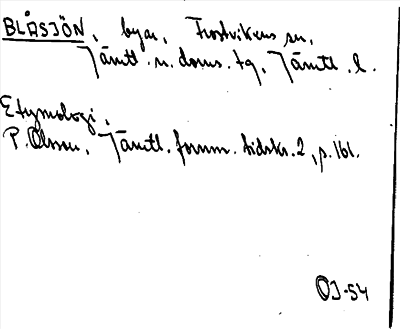 BLÅSJÖN, byar, Frostvikens sn,
Jämtl. n. doms. tg, Jämtl. l.
Etymologi,
P. Olsson, Jämtl. fornm. tidskr. 2, p. 161.
OJ-54